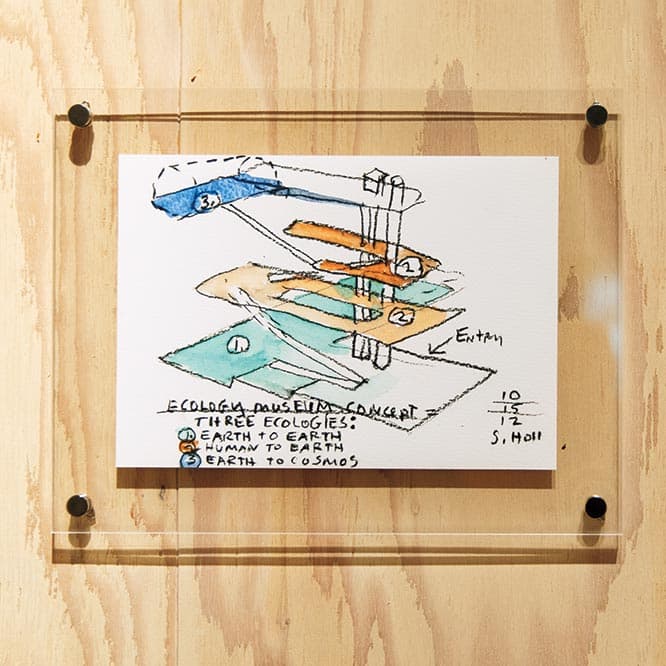 3.
2.
2.
1.
ENTRY
ECOLOGY MUSEUM CONCEPT =
THREE ECOLOGIES:
1 EARTH TO EARTH
2 HUMAN TO EARTH
3 EARTH TO COSMOS
10
15
12
S. Holl